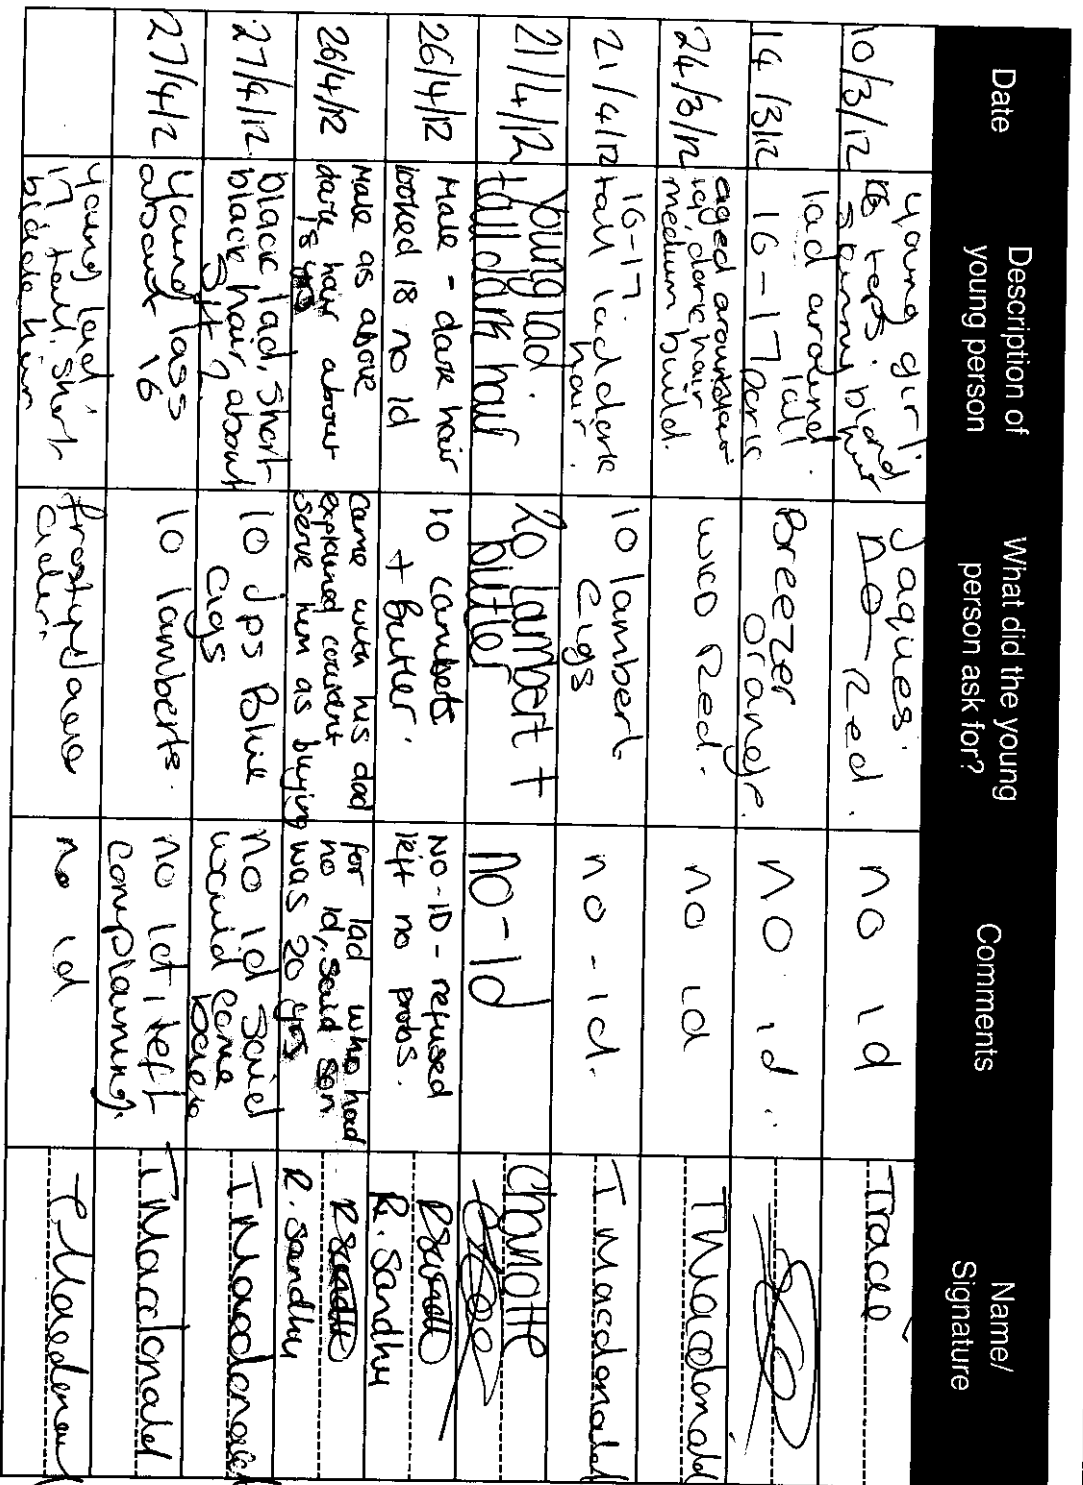 Date
Description of
young person
What did the young
person ask for?
Comments
Name/
Signature
10/3/12
young girl
16 specs. blond
Jaques.
Red.
no id
Tracie
14/3/12
lad around
16-17 tall
dark
Breezer
Orange.
no id.
24/3/12
aged around
19, dark hair
medium build.
WKD Red.
no id
T Macdonald
21/4/12
16-17
tall lad dark
hair.
10 lambert
cigs
no-id.
T Macdonald
21/4/12
Young lad.
tall dark hair
20 lambert +
butler
no-id
Charlotte
26/4/12
Male - dark hair
looked 18 no id
10
+ butler.
NO-ID - refused
left no probs.
R. Sandhu
26/4/12
Male as above
dark hair about
came with his dad
explained
serve him as buying
for lad who had
no id, said son
was 20 yrs
R. Sandhu
27/4/12
black lad, short
black hair, about
5ft 7
10 Jps Blue
cigs
no id said
would come
back
T Macdonald
27/4/12
Young lass
about 16
10 lamberts.
no id, left
complaining.
T Macdonald
young lad
17 tall, short
frosty jacks
cider.
no id